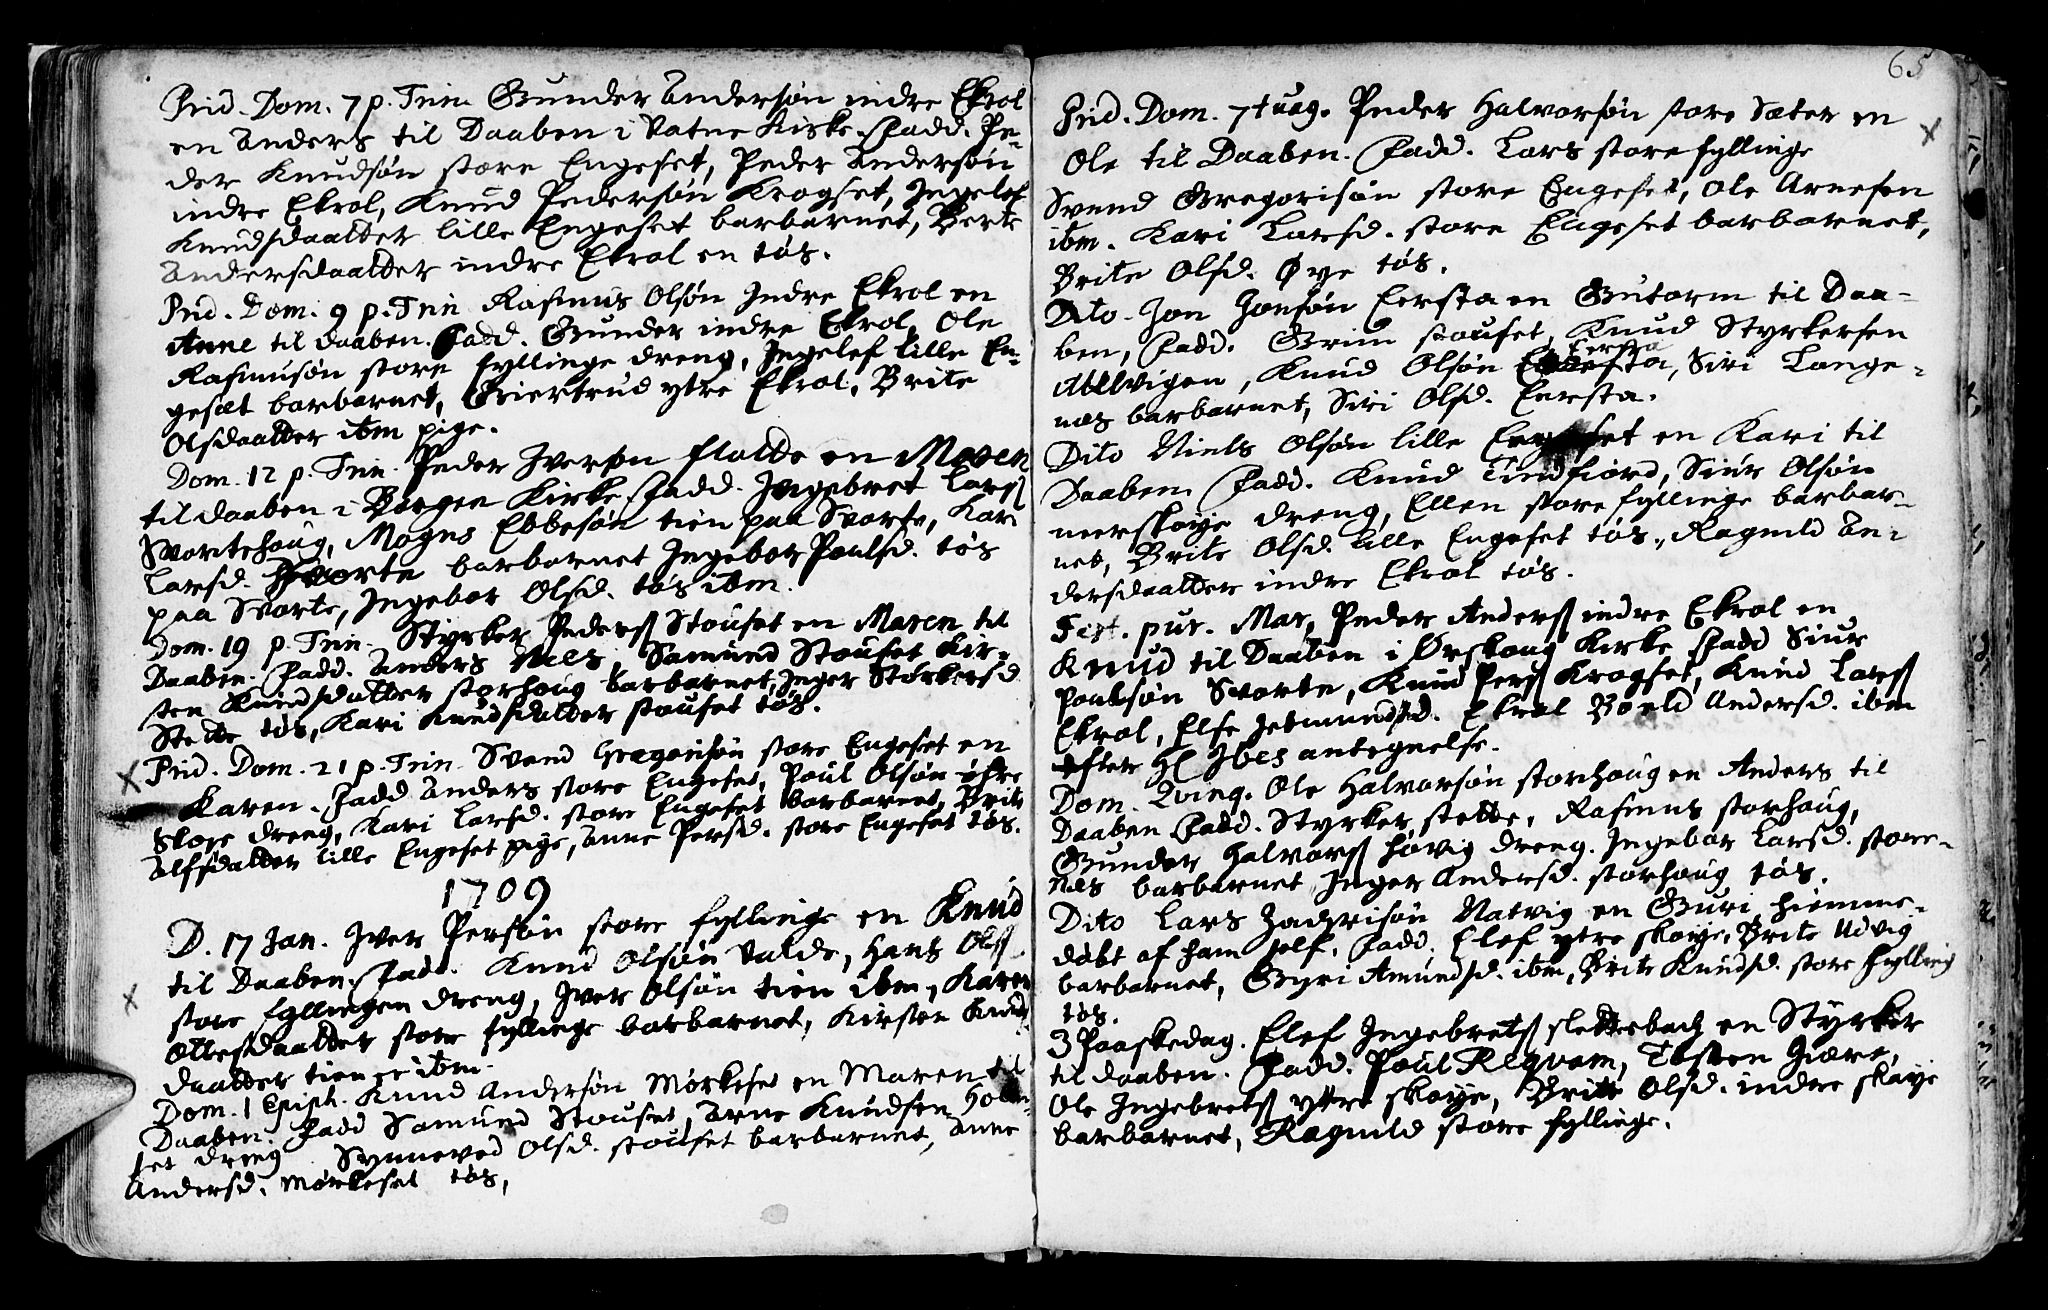 Prid. Dom. 7 p. Trin. Gunder Andersøn indre Ekrol
en Anders til Daaben i Vatne Kirke. Fadd. Pe-
der Knudsøn store Engeset, Peder Andersøn
indre Ekrol, Knud Pedersøn Krogset, Ingelef
Knudsdaatter lille Engeset barbarnet, Berte
Andersdaatter indre Ekrol en tøs.
Prid. Dom. 9 p. Trin Rasmus Olsøn Indre Ekrol en
Anne til daaben. Fadd. Gunder indre Ekrol, Ole
Rasmusøn store fyllinge dreng, Ingelef lille En-
gesæt barbarnet, Giertrud ytre Ekrol, Brite
Olsdaatter ibm pige.
Dom. 12 p. Trin. Peder Iversøn flatte en Maren
til daaben i Borgen Kirke. Fadd. Ingebret Lars
Svortehaug, Mogns Ebbesøn tien paa Svorte, Kari
Larsd. Svorte barbarnet Ingebor Poulsd. tøs
paa Svorte, Ingebor Olsd. tøs ibm.
Dom. 19 p. Trin. Styrker Peders Stouset en Maren til
Daaben. Fadd. Anders Næs, Samund Stouset Kir-
sten Knudsdatter storhoug barbarnet, Inger Størkersd
Stette tøs, Kari Knudsdatter stouset tøs.
x Prid. Dom. 21 p. Trin. Svend Gregorisøn store Engeset en
Karen. Fadd Anders store Engeset, Poul Olsøn
Skoye dreng, Kari Larsd. store Engeset barbarnet, Brite
Alfsdatter lille Engeset pige, Anne Persd. store Engeset tøs.
1709
D. 17 Jan. Iver Persøn store fyllinge en Knud
til Daaben. Fadd. Knud Olsøn Valde, Hans Ols
x store fyllingen dreng, Iver Olsøn tien ibm, Karen
Ottesdaatter store fyllinge barbarnet, Kirsten Knuds
daatter tien ibm.
Dom. 1 Epiph. Knud Andersøn Mørkeset en Maren til
Daaben. Fadd Samund Stouset, Arne Knudsen
set dreng Synneved Olsd. stouset barbarnet, Anne
Andersd. Mørkeset tøs,
65
Prid. Dom. 7tuag. Peder Halvorsøn store Sæter en x
Ole til Daaben. Fadd. Lars store fyllinge
Svend Gregorisøn store Engeset, Ole Arnesen
ibm. Kari Larsd. store Engeset barbarnet,
Brite Olsd. Øye tøs.
Dito. Jon Jonsøn Eersta en Gutorm til Daa-
ben, Fadd. Grim stouset, Knud Styrkersen
Abelvigen, Knud Olsøn Eersta, Siri Lange-
næs barbarnet, Siri Olsd. Eersta.
Dito Niels Olsøn lille Engeset en Kari til
Daaben. Fadd. Knud Tindfiord, Siur Olsøn
nerskoye dreng, Ellen store fyllinge barbar-
net, Brite Olsd. lille Engeset tøs, Ragnild An-
dersdaatter indre Ekrol tøs.
Fest. pur. Mar, Peder Anders indre Ekrol en
Knud til Daaben i Ørskoug Kirke Fadd Siur
Poulsøn Svorte, Knud Pers Krogset, Knud Lars
Ekrol, Else Jetmundsd. Ekrol Boeld Andersd. ibm
efter H Ibes antegnelse.
Dom. Qving. Ole Halvorsøn storhoug en Anders til
Daaben Fadd. Styrker stette, Rasmus storhoug,
Gunder Halvors høvig dreng. Ingebor Larsd. store-
næs barbarnet Inger Andersd. storhoug tøs.
Dito Lars Zachrisøn Natvig en Guri hiemme-
døbt af ham self. Fadd. Elef ytre skoye, Brite Udvig
barbarnet, Gyri Amundsd. ibm, Brite Knudsd. store fylling
tøs.
3 Paaskedag. Elef Ingebrets slettebach en Styrker
til daaben. Fadd. Poul Reqvam, Tosten Giære,
Ole Ingebrets yttre skoye, Britte Olsd. indre skoye
barbarnet, Ragnild store fyllinge.